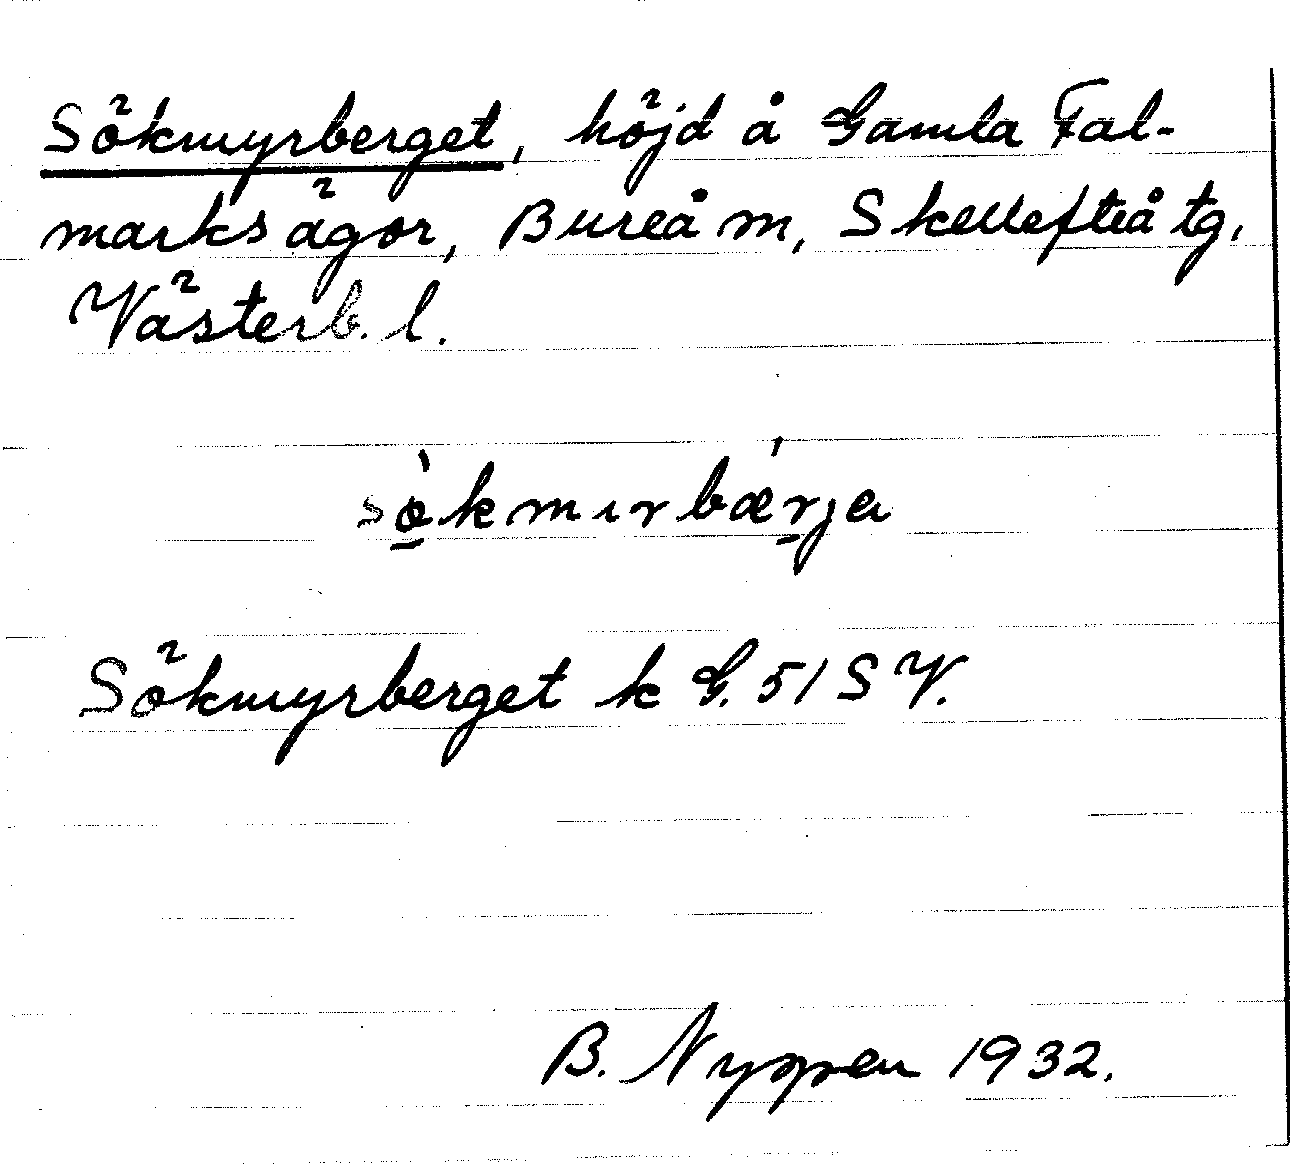 Sökmyrberget, höjd å Gamla Fal-
marks ägor, Bureå m, Skellefteå tg,
Västerb. l.
sò̱kmırbǽṟja
Sökmyrberget k G. 51 S V.
B. Nyppen 1932.